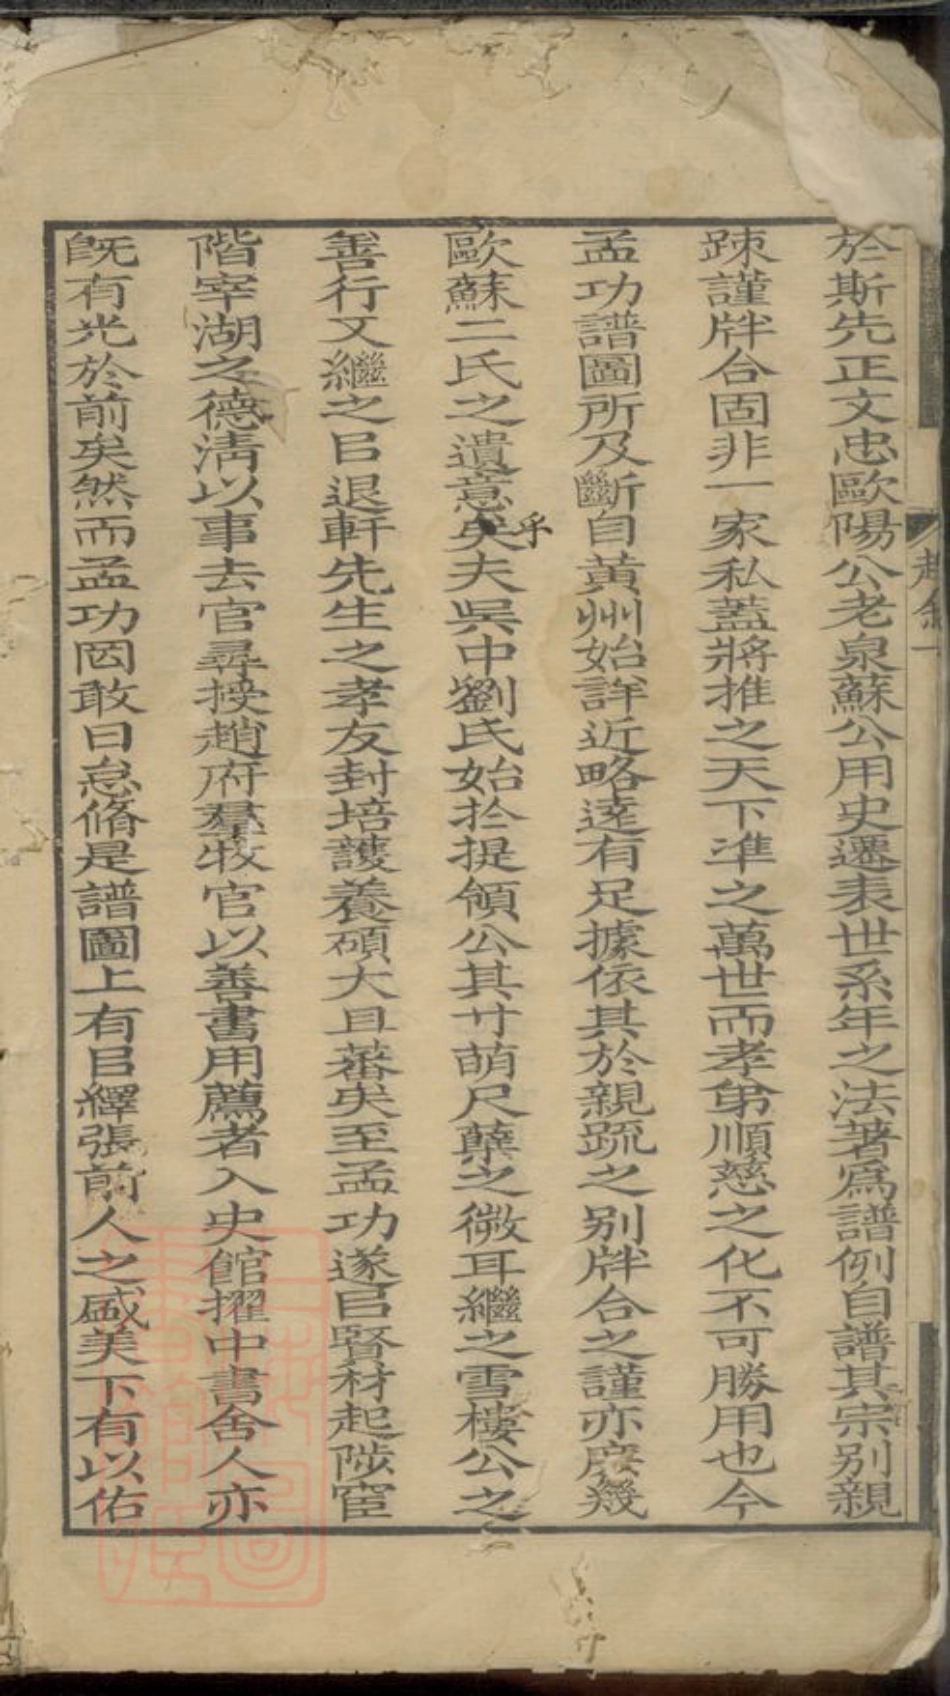 於斯先正文忠歐陽公老泉蘇公用史遷表世系年之法著為譜例自譜其宗別親
踈謹牉合固非一家私蓋將推之天下準之萬世而孝弟順慈之化不可勝用也今
孟功譜圖所及斷自黃州始詳近略遠有足據依其於親疏之別牉合之謹亦庶幾
歐蘇二氏之遺意矣乎夫吳中劉氏始於提領公其寸萌尺蘖之微耳繼之雪樓公之
善行又繼之㠯退軒先生之孝友封培護養碩大且蕃矣至孟功遂㠯賢材起陟宦
階宰湖之德清以事去官尋授趙府羣牧官以善書用薦者入史館擢中書舍人亦
旣有光於前矣然而孟功罔敢曰怠脩是譜圖上有㠯繹張前人之盛美下有以佑